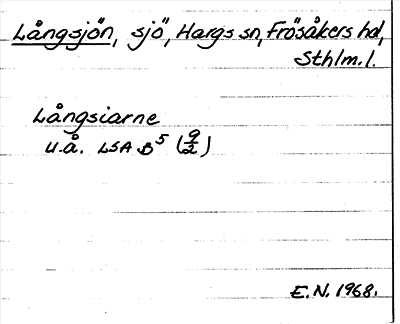 Långsjön, sjö, Hargs sn, Frösåkers hd,
Sthlm. l.
Långsiarne
u.å. LSA B⁵ (9/2)
E.N. 1968.